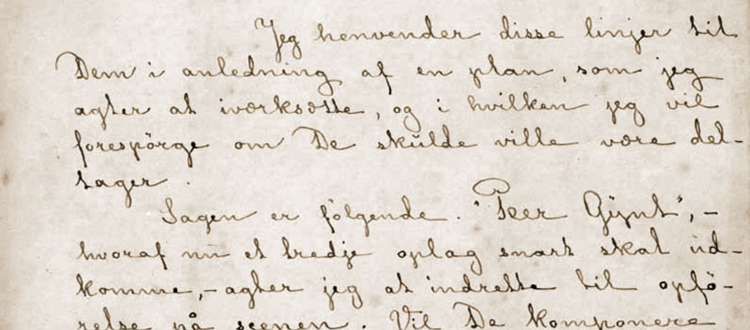 Jeg henvender disse linjer til
Dem i anledning af en plan, som jeg
agter at iværksætte, og i hvilken jeg vil
forespörge om De skulde ville være del-
tager.
Sagen er fölgende. "Peer Gynt", -
hvoraf nu et tredje oplag snart skal ud-
komme, - agter jeg at indrette til opfö-
relse på scenen. Vil De komponere